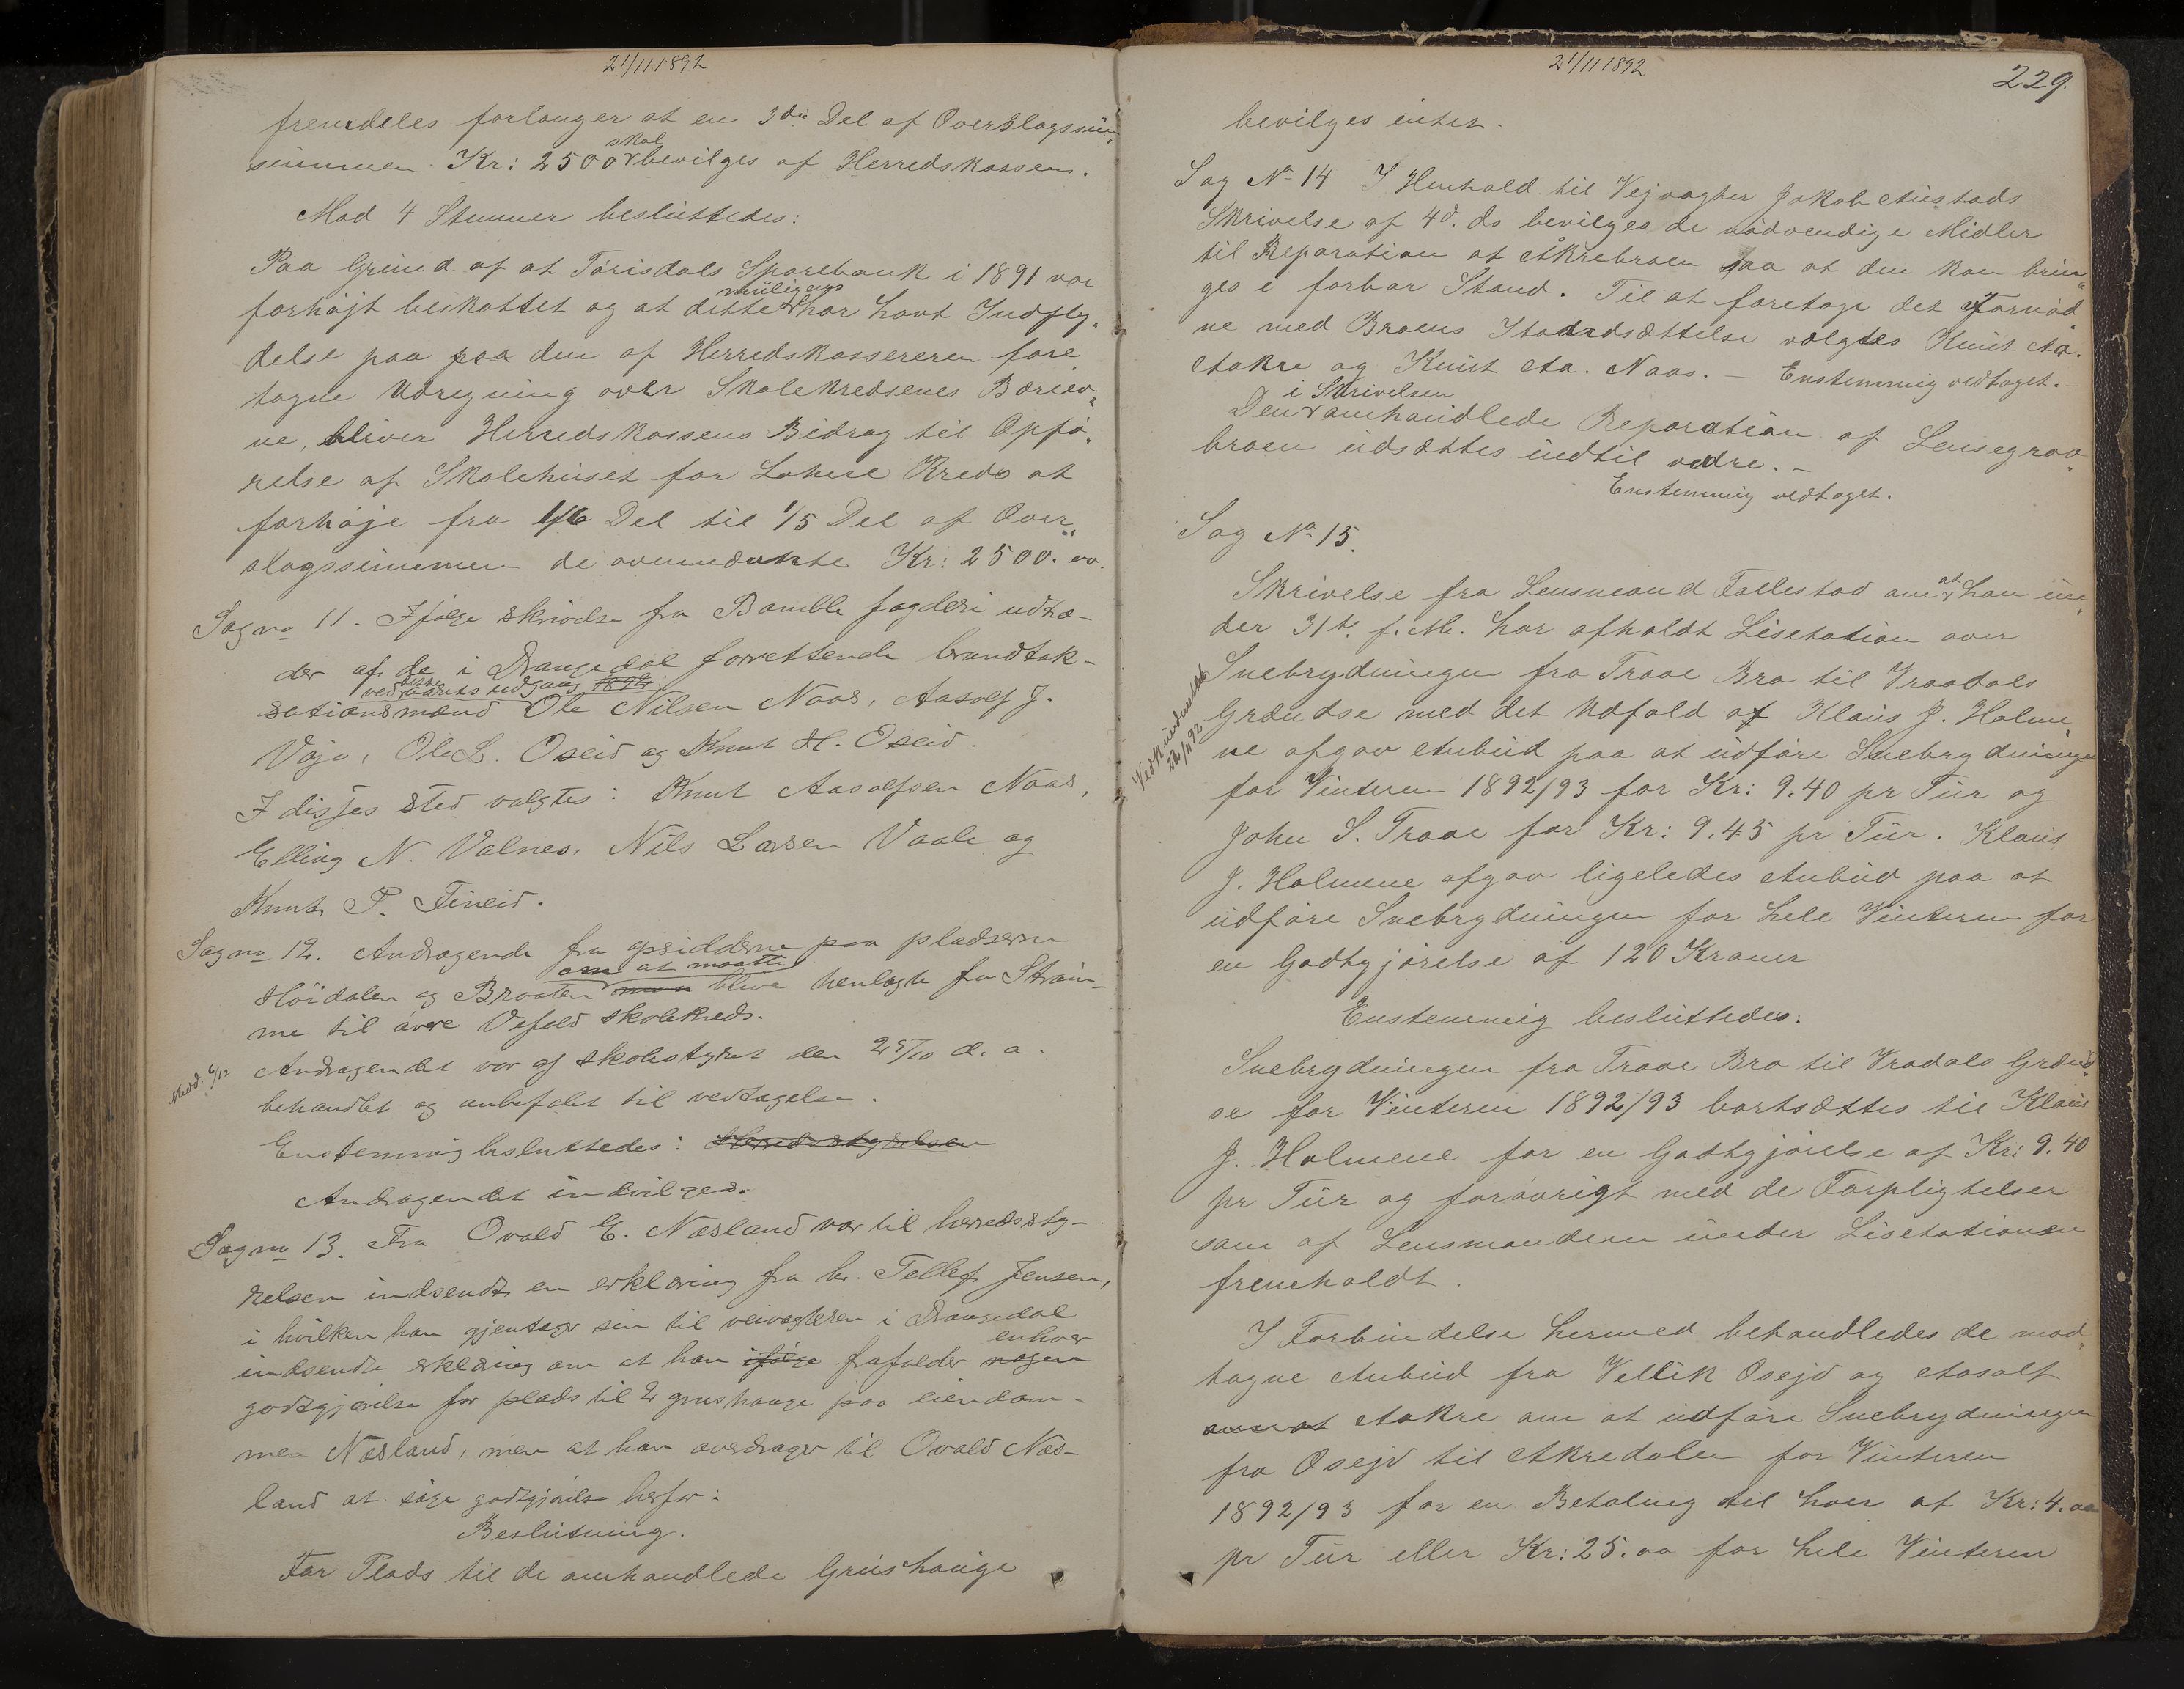 21/11 1892
fremdeles forlanger at en 3die Del af Overslagssum„
summen Kr: 2500 skal bevilges af Herredskassen.
Mod 4 Stemmer besluttedes:
Paa Grund af at Tørisdals Sparebank i 1891 var
forhøjt beskattet og at dette muligens har havt Indfly„
delse paa paa den af Herredskassereren fore
tagne Udregning over Skolekredsenes Bæreev„
ne, bliver Herredskassens Bidrag til Opfø„
relse af Skolehuset for Lohne Kreds at
forhøje fra 1/6 Del til 1/5 Del af Over„
slagssummen de ovennævnte Kr: 2500.00.
Sag no 11. Ifølge skrivelse fra Bamble fogderi udtræ-
der af de i Drangedal forrettende brandtak-
sationsmænd ved dette aarets udgang 1892 Ole Nilsen Naas, Aasolf J.
Vøjø, Ole L. Oseid og Knut H. Oseid.
I disses sted valgtes: Knut Aasolfsen Naas,
Elling N. Valnes, Nils Larsen Vaale og
Knut P. Fineid.
Sag no 12. Andragende fra opsidderne paa pladserne
Høidalen og Braaten om at maatte maa blive henlagte fra Strøm-
me til øvre Vefald skolekreds.
Medd. 6/12
Andragendet var af skolestyret den 25/10 d. a.
behandlet og anbefalet til vedtagelse.
Enstemmig besluttedes: Herredsstyrelsen
Andragendet indvilges.
Sag no 13. Fra Ovald E. Næsland var til herredssty-
relsen indsendt en erklæring fra hr. Tellef Jensen,
i hvilken han gjentager sin til veivogteren i Drangedal
indsendte erklæring om at han ifølge frafalder nogen enhver
godtgjørelse for plads til 2 grushauge paa eiendom-
men Næsland, men at han overdrager til Ovald Næs-
land at søge godtgjørelse herfor:
Beslutning.
For Plads til de omhandlede Grushauge
21/11 1892
229.
bevilges intet.
Sag No 14 I Henhold til Vejvogter Jakob Austads
Skrivelse af 4d. ds bevilges de nødvendige Midler
til Reparation af Åkrebroen saa at den kan brin„
ges i farbar Stand. Til at foretage det Fornød„
ne med Broens Istandsættelse valgtes Knut Aa.
Aakre og Knut Aa. Naas. — Enstemmig vedtaget. —
Den i Skrivelsen omhandlede Reparation af Lensegrav„
broen udsættes indtil vidre. —
Enstemmig vedtaget.
Sag No 15.
Skrivelse fra Lensmand Tallestad om at han un„
der 31te. f. M. har afholdt Lisetation over
Snebrydningen fra Traae Bro til Vraadals
Grændse med det Udfald at Klaus J. Holme„
ne afgav Anbud paa at udføre Snebrydningen
for Vinteren 1892/93 for Kr: 9.40 pr Tur og
John S. Traae for Kr: 9.45 pr Tur. Klaus
J. Holmene afgav ligeledes Anbud paa at
udføre Snebrydningen for hele Vinteren for
en Godtgjørelse af 120 Kroner
Enstemmig besluttedes:
Snebrydningen fra Traae Bro til Vradals Grænd„
se for Vinteren 1892/93 bortsættes til Klaus
J. Holmene for en Godtgjørelse af Kr: 9.40
pr Tur og forøvrigt med de Forpligtelser
som af Lensmanden under Lisetationen
fremholdt.
I Forbindelse hermed behandledes de mod„
tagne Anbud fra Vellik Osejd og Aasolf
om at Aakre om at udføre Snebrydningen
fra Osejd til Akredalen for Vinteren
1892/93 for en Betaling til hver af Kr: 4.00
pr Tur eller Kr: 25.00 for hele Vinteren